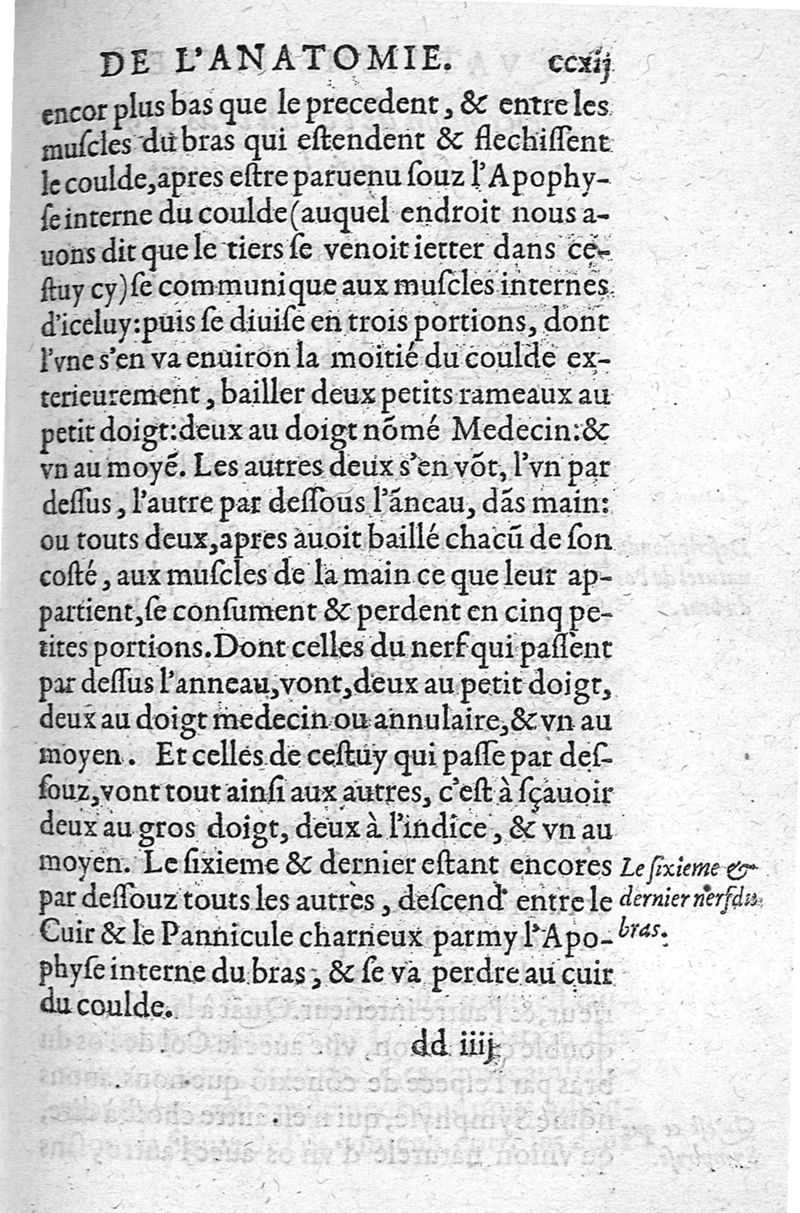 DE L'ANATOMIE. ccxij
encor plus bas que le precedent, & entre les
muſcles du bras qui eſtendent & flechiſſent
le coulde, apres eſtre paruenu ſouz l'Apophy-
ſe interne du coulde (auquel endroit nous a-
uons dit que le tiers ſe venoit ietter dans ce-
ſtuy cy) ſe communique aux muſcles internes
d'iceluy: puis ſe diuiſe en trois portions, dont
l'vne s'en va enuiron la moitié du coulde ex-
terieurement, bailler deux petits rameaux au
petit doigt: deux au doigt nōmé Medecin: &
vn au moyē. Les autres deux s'en vōt, l'vn par
deſſus, l'autre par deſſous l'āneau, dās main:
ou touts deux, apres auoit baillé chacū de ſon
coſté, aux muſcles de la main ce que leur ap-
partient, ſe conſument & perdent en cinq pe-
tites portions. Dont celles du nerf qui paſſent
par deſſus l'anneau, vont, deux au petit doigt,
deux au doigt medecin ou annulaire, & vn au
moyen. Et celles de ceſtuy qui paſſe par deſ-
ſouz, vont tout ainſi aux autres, c'eſt à ſçauoir
deux au gros doigt, deux à l'indice, & vn au
moyen. Le ſixieme & dernier eſtant encores
par deſſouz touts les autres, deſcend entre le
Cuir & le Pannicule charneux parmy l'Apo-
phyſe interne du bras, & ſe va perdre au cuir
du coulde.
Le ſixieme &
dernier nerf du
bras.
dd iiij